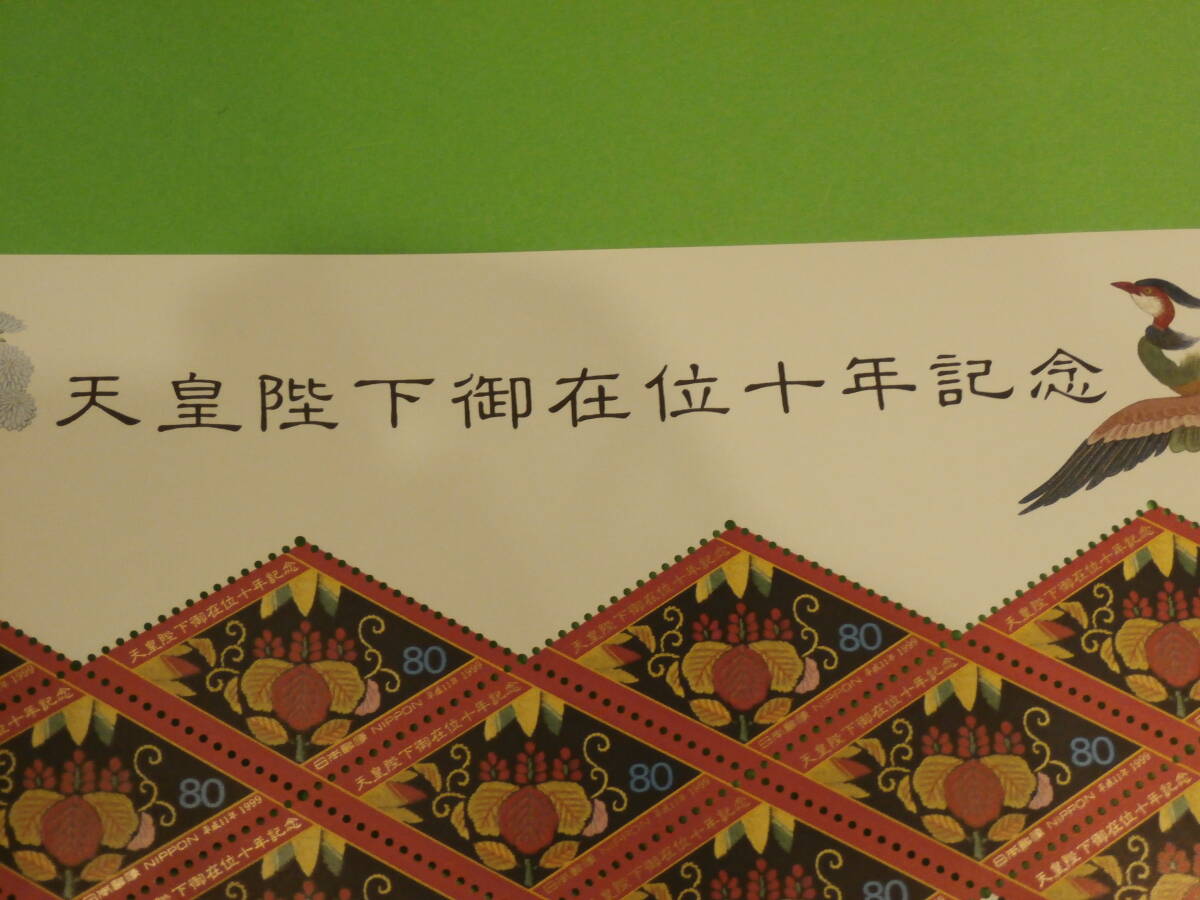 天皇陛下御在位十年記念
天皇陛下御在位十年記念
80
日本郵便 NIPPON 平成11年 1999
天皇陛下御在位十年記念
80
日本郵便 NIPPON 平成11年 1999
天皇陛下御在位十年記念
年記念
80
日本郵便 NIPPON 平成11年 1999
天皇陛下御在位十年記念
80
日本郵便
1999
天皇陛下御在位十年記念
80
日本郵便 NIPPON 平成11年 1999
下御在位十年記念
在位十年記念
80
天皇陛下御在位十年記念